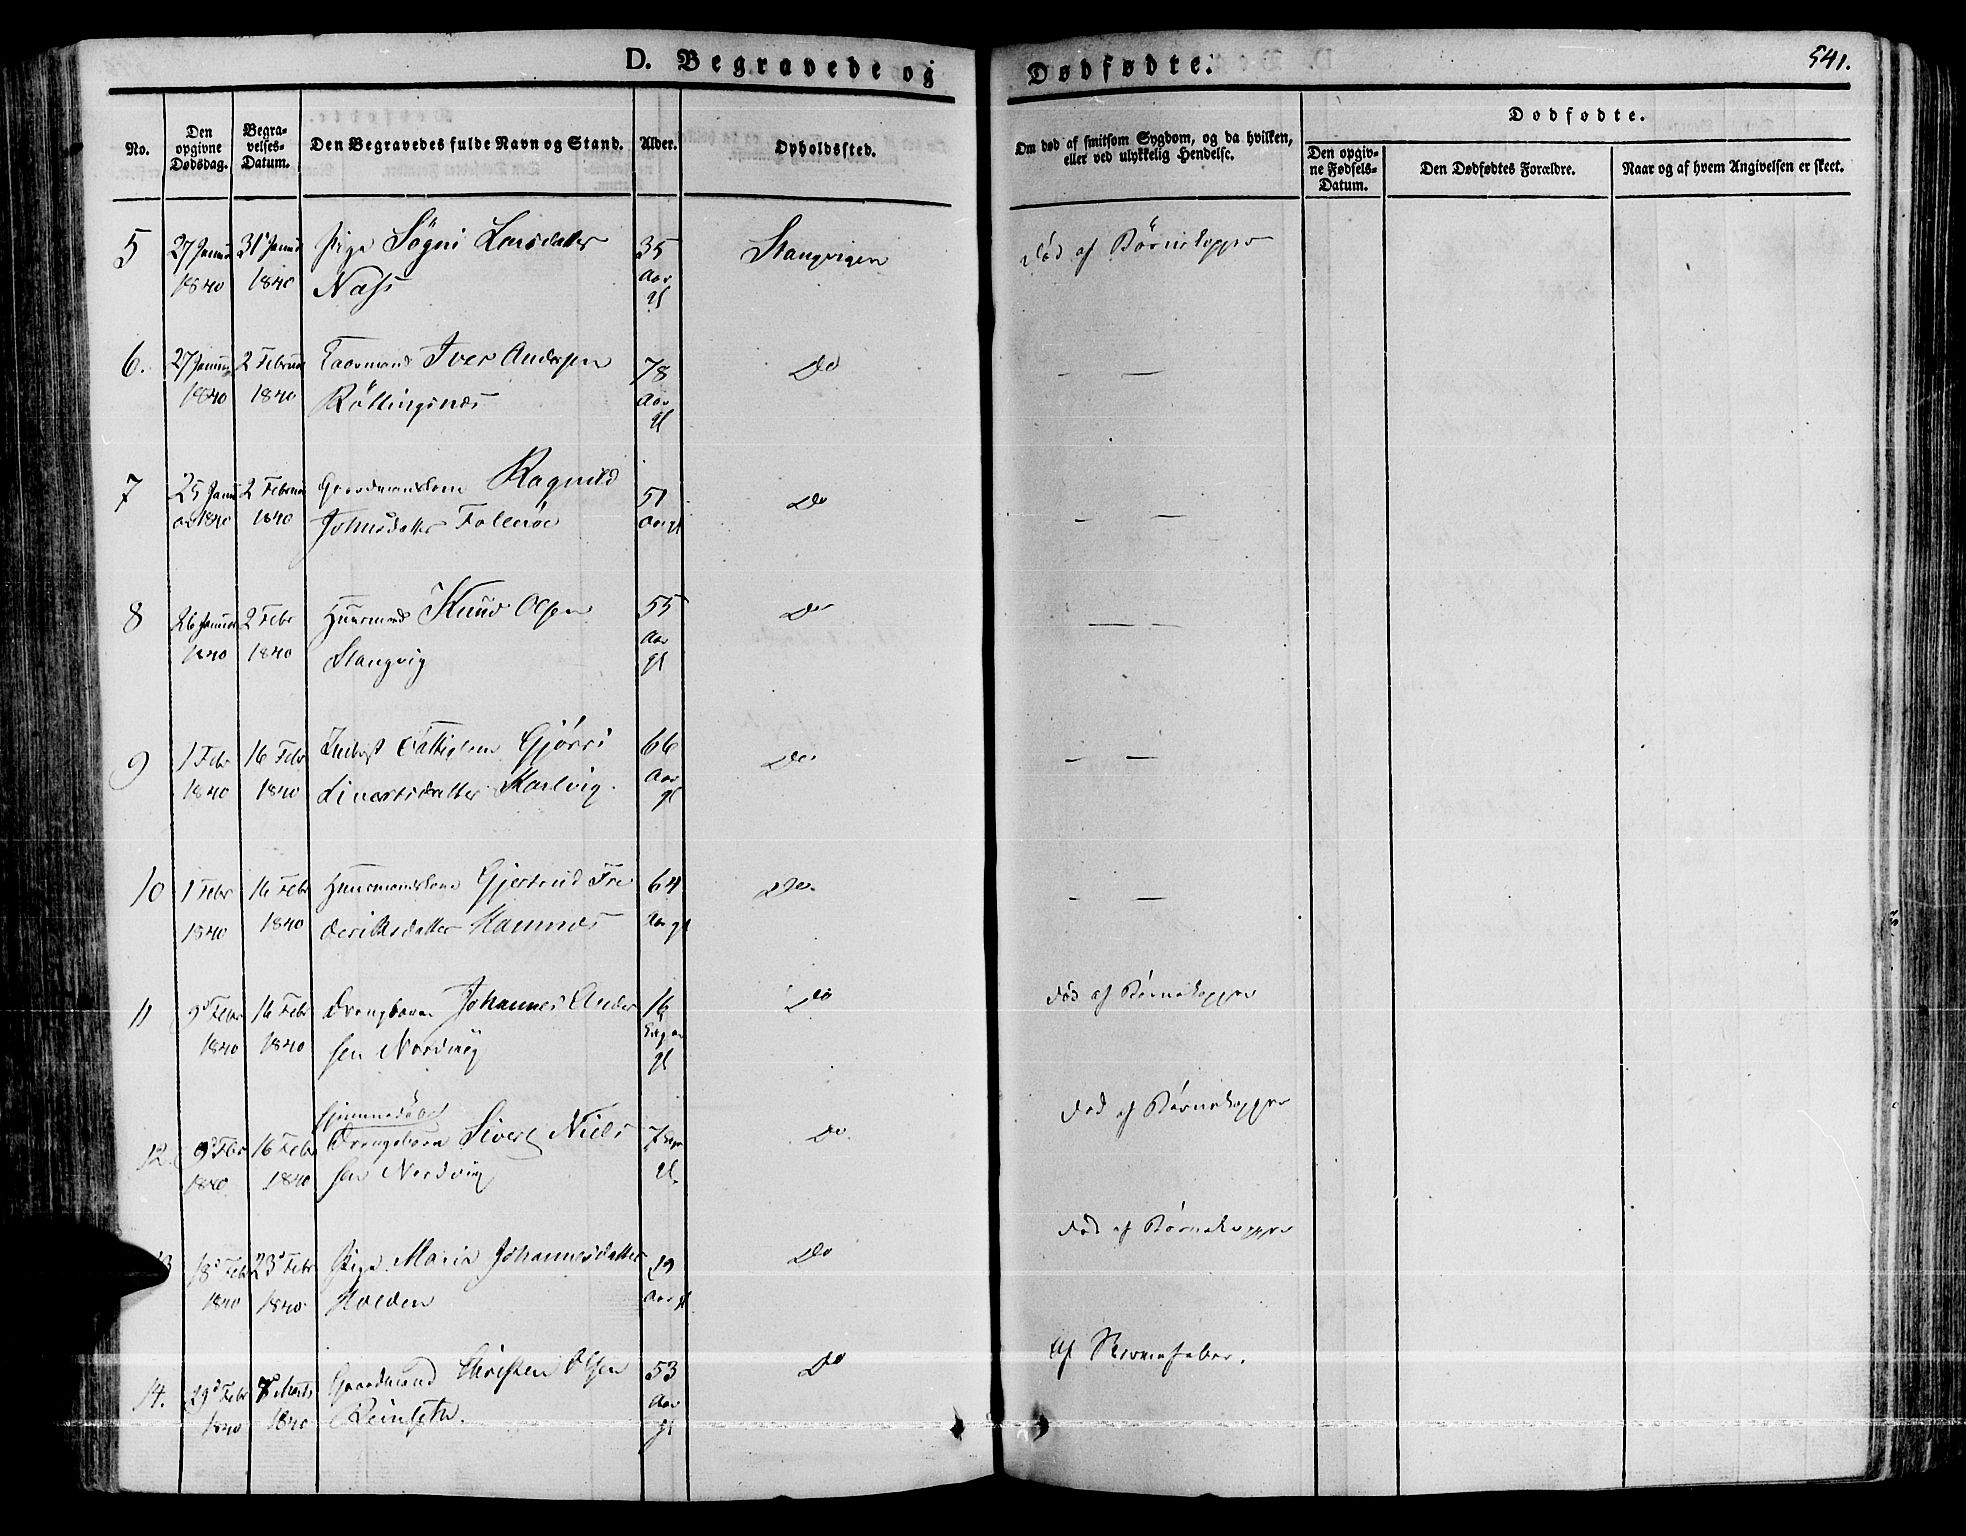 D. Begravede og Dødfødte.
541.
No.
Den opgivne Dødsdag.
Begravelses-Datum.
Den Begravedes fulde Navn og Stand.
Alder.
Opholdssted.
Om død af smitsom Sygdom, og da hvilken, eller ved ulykkelig Hendelse.
Dødfødte.
Den opgivne Fødsels-Datum.
Den Dødfødtes Forældre.
Naar og af hvem Angivelsen er skeet.
5 27 Januar 31 Januar Pige Søgni Larsdatter 35 Stangvigen Død af Børnekopper
1840 1840 Næss Aar
gl
6. 27 Januar 2 Februar Iver Andersen 78 Do — —
1840 1840 Røttingsnæs Aar
gl
7 25 Janu 2 Februar Gaardmandskone Ragnild 51 Do — —
1840 1840 Johnsdatter Folleøe Aar gl
8 26 Januar 2 Febr Huusmand Knud Olsen 55 Do — —
1840 1840 Stangvig Aar
gl
9 1 Febr 16 Febr Gjørri 66 Do — —
1840 1840 Aar
gl
10 1 Febr 16 Febr Huusmandskone Gjertrud Fre 64 Do — —
1840 1840 deriksdatter Hamnes Aar gl
11 9d Febr 16 Febr Drengbarn Johannes Ander 16 Do Død af Børnekopper
1840 1840 sen Nordvig Uger
gl
hjemmedøbt
12. 9d Febr 16 Febr Drengebarn Sivert Niels 7 Do Død af Børnekopper
1840 1840 sen Nordvig gl
18d Febr 23d Febr Pige Maria Johannesdatter 19 Do Død af Børnekopper
1840 1840 Holden Aar gl
14. 29d Febr 7d Marts Gaardmand Christen Olsen 53 Do Af Nervefeber.
1840 1840 Reinseth. Aar
gl